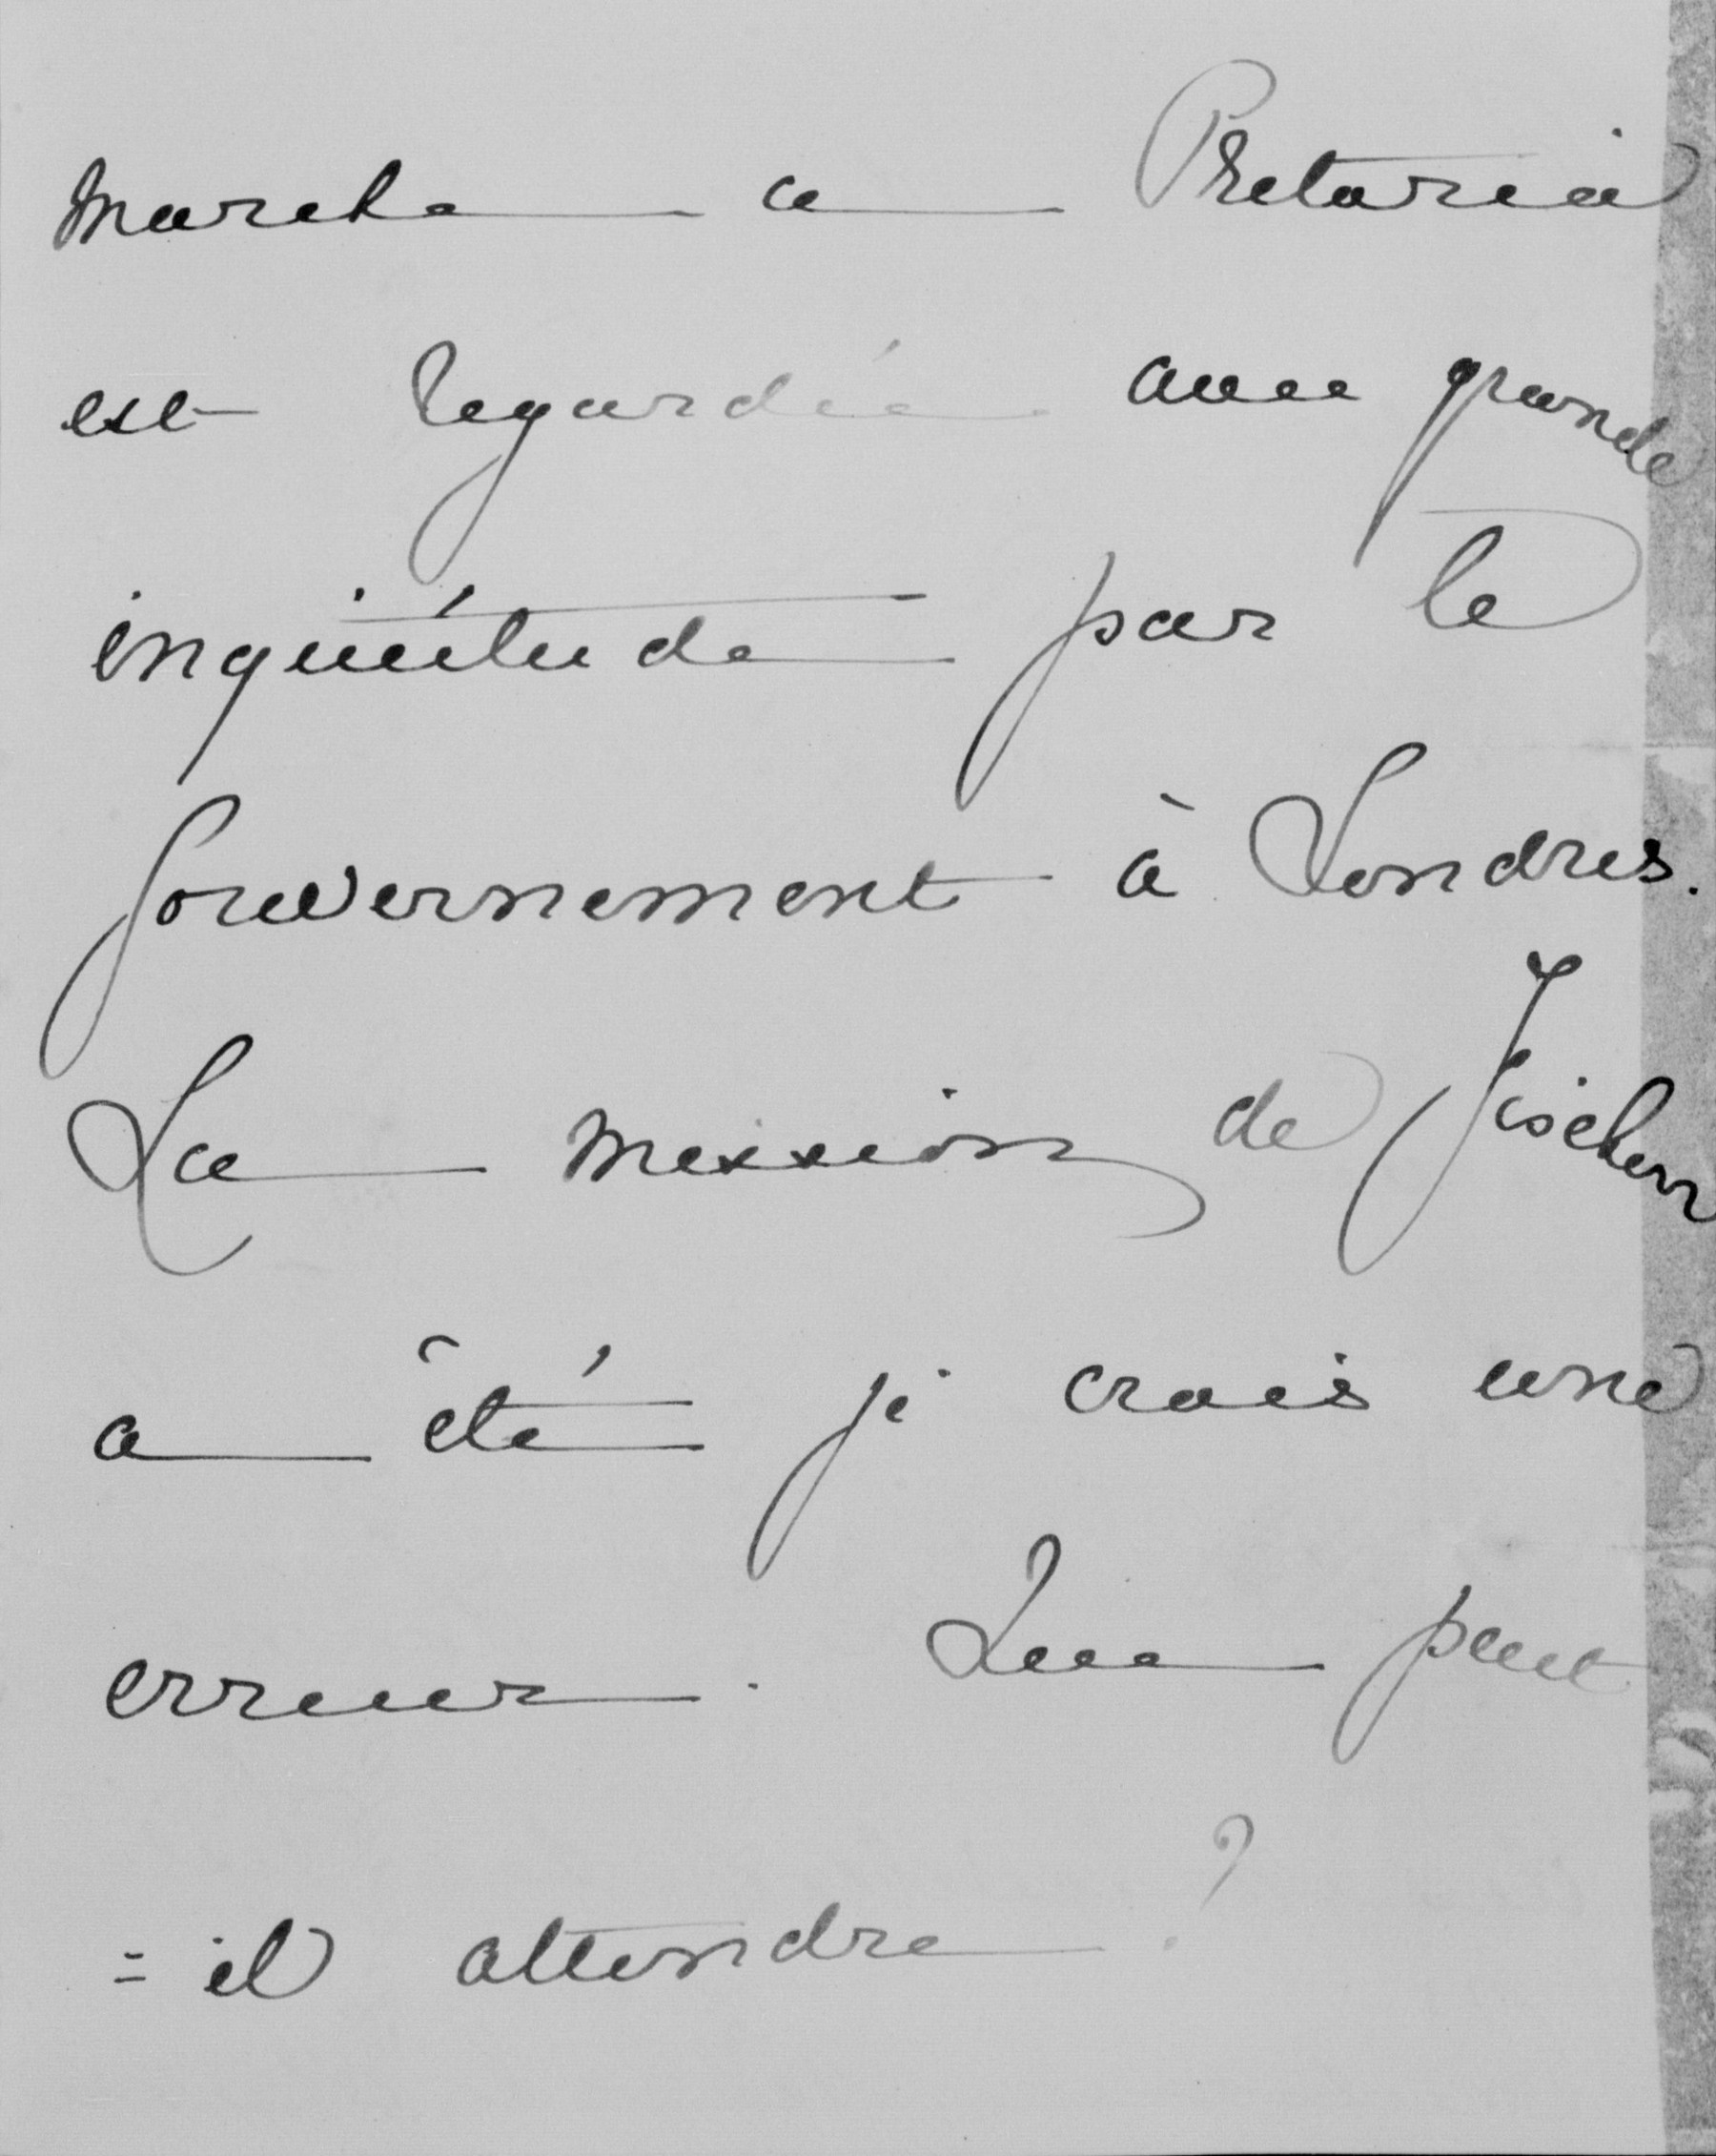 marche a Pretoria
est regardée avec grande
inquiétude par le
gouvernement à Londres.
La mission de Fischer
a été je crois une
erreur. Que peut
= il attendre ?